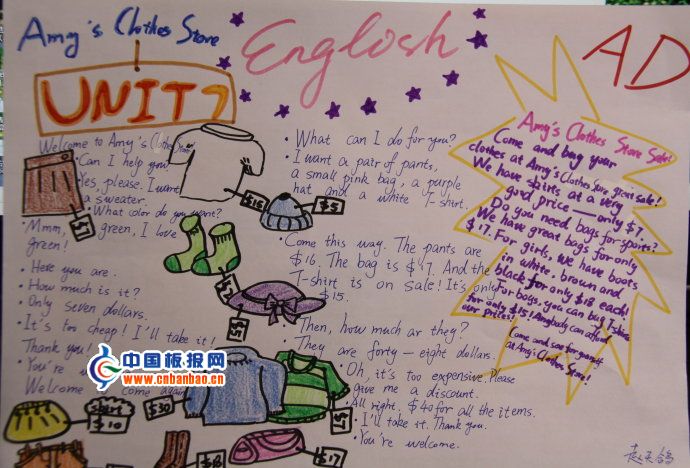 Amy's Clothes Store
Englosh
AD
UNIT7
Welcome to Amy's Clothes Store
• Can I help you
• Yes, please. I want
a sweater.
• What color do you want?
• Mmm, green, I love
green!
• Here you are.
• How much is it?
• Only seven dollars.
• It's too cheap! I'll take it!
Thank you!
• You're
Welcome to come again
• What can I do for you?
• I want a pair of pants,
a small pink bag, a purple
hat and a white T-shirt.
• Come this way. The pants are
$16. The bag is $17. And the
T-shirt is on sale! It's only
$15.
• Then, how much ar they?
• They are forty-eight dollars.
• Oh, it's too expensive. Please
give me a discount.
• All right. $40 for all the items.
• I'll take it. Thank you.
• You're welcome.
Amy's Clothes Store Sale!
Come and bug your
clothes at Amy's Clothes Store great sale!
We have shirts at a very
good price — only $7.
Do you need bags for sports?
We have great bags for only
$17. For girls, we have boots
in white, brown and
black for only $18 each!
For boys, you can buy T-shirts
for only $15! Anybody can afford
our prices!
Come and see for yourself
at Amy's Clothes Store!
$7
$15
$5
$2
$30
$10
$18
$17
中国板报网
www.cnbanbao.cn